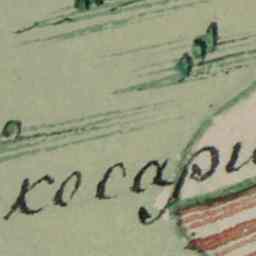 хосари